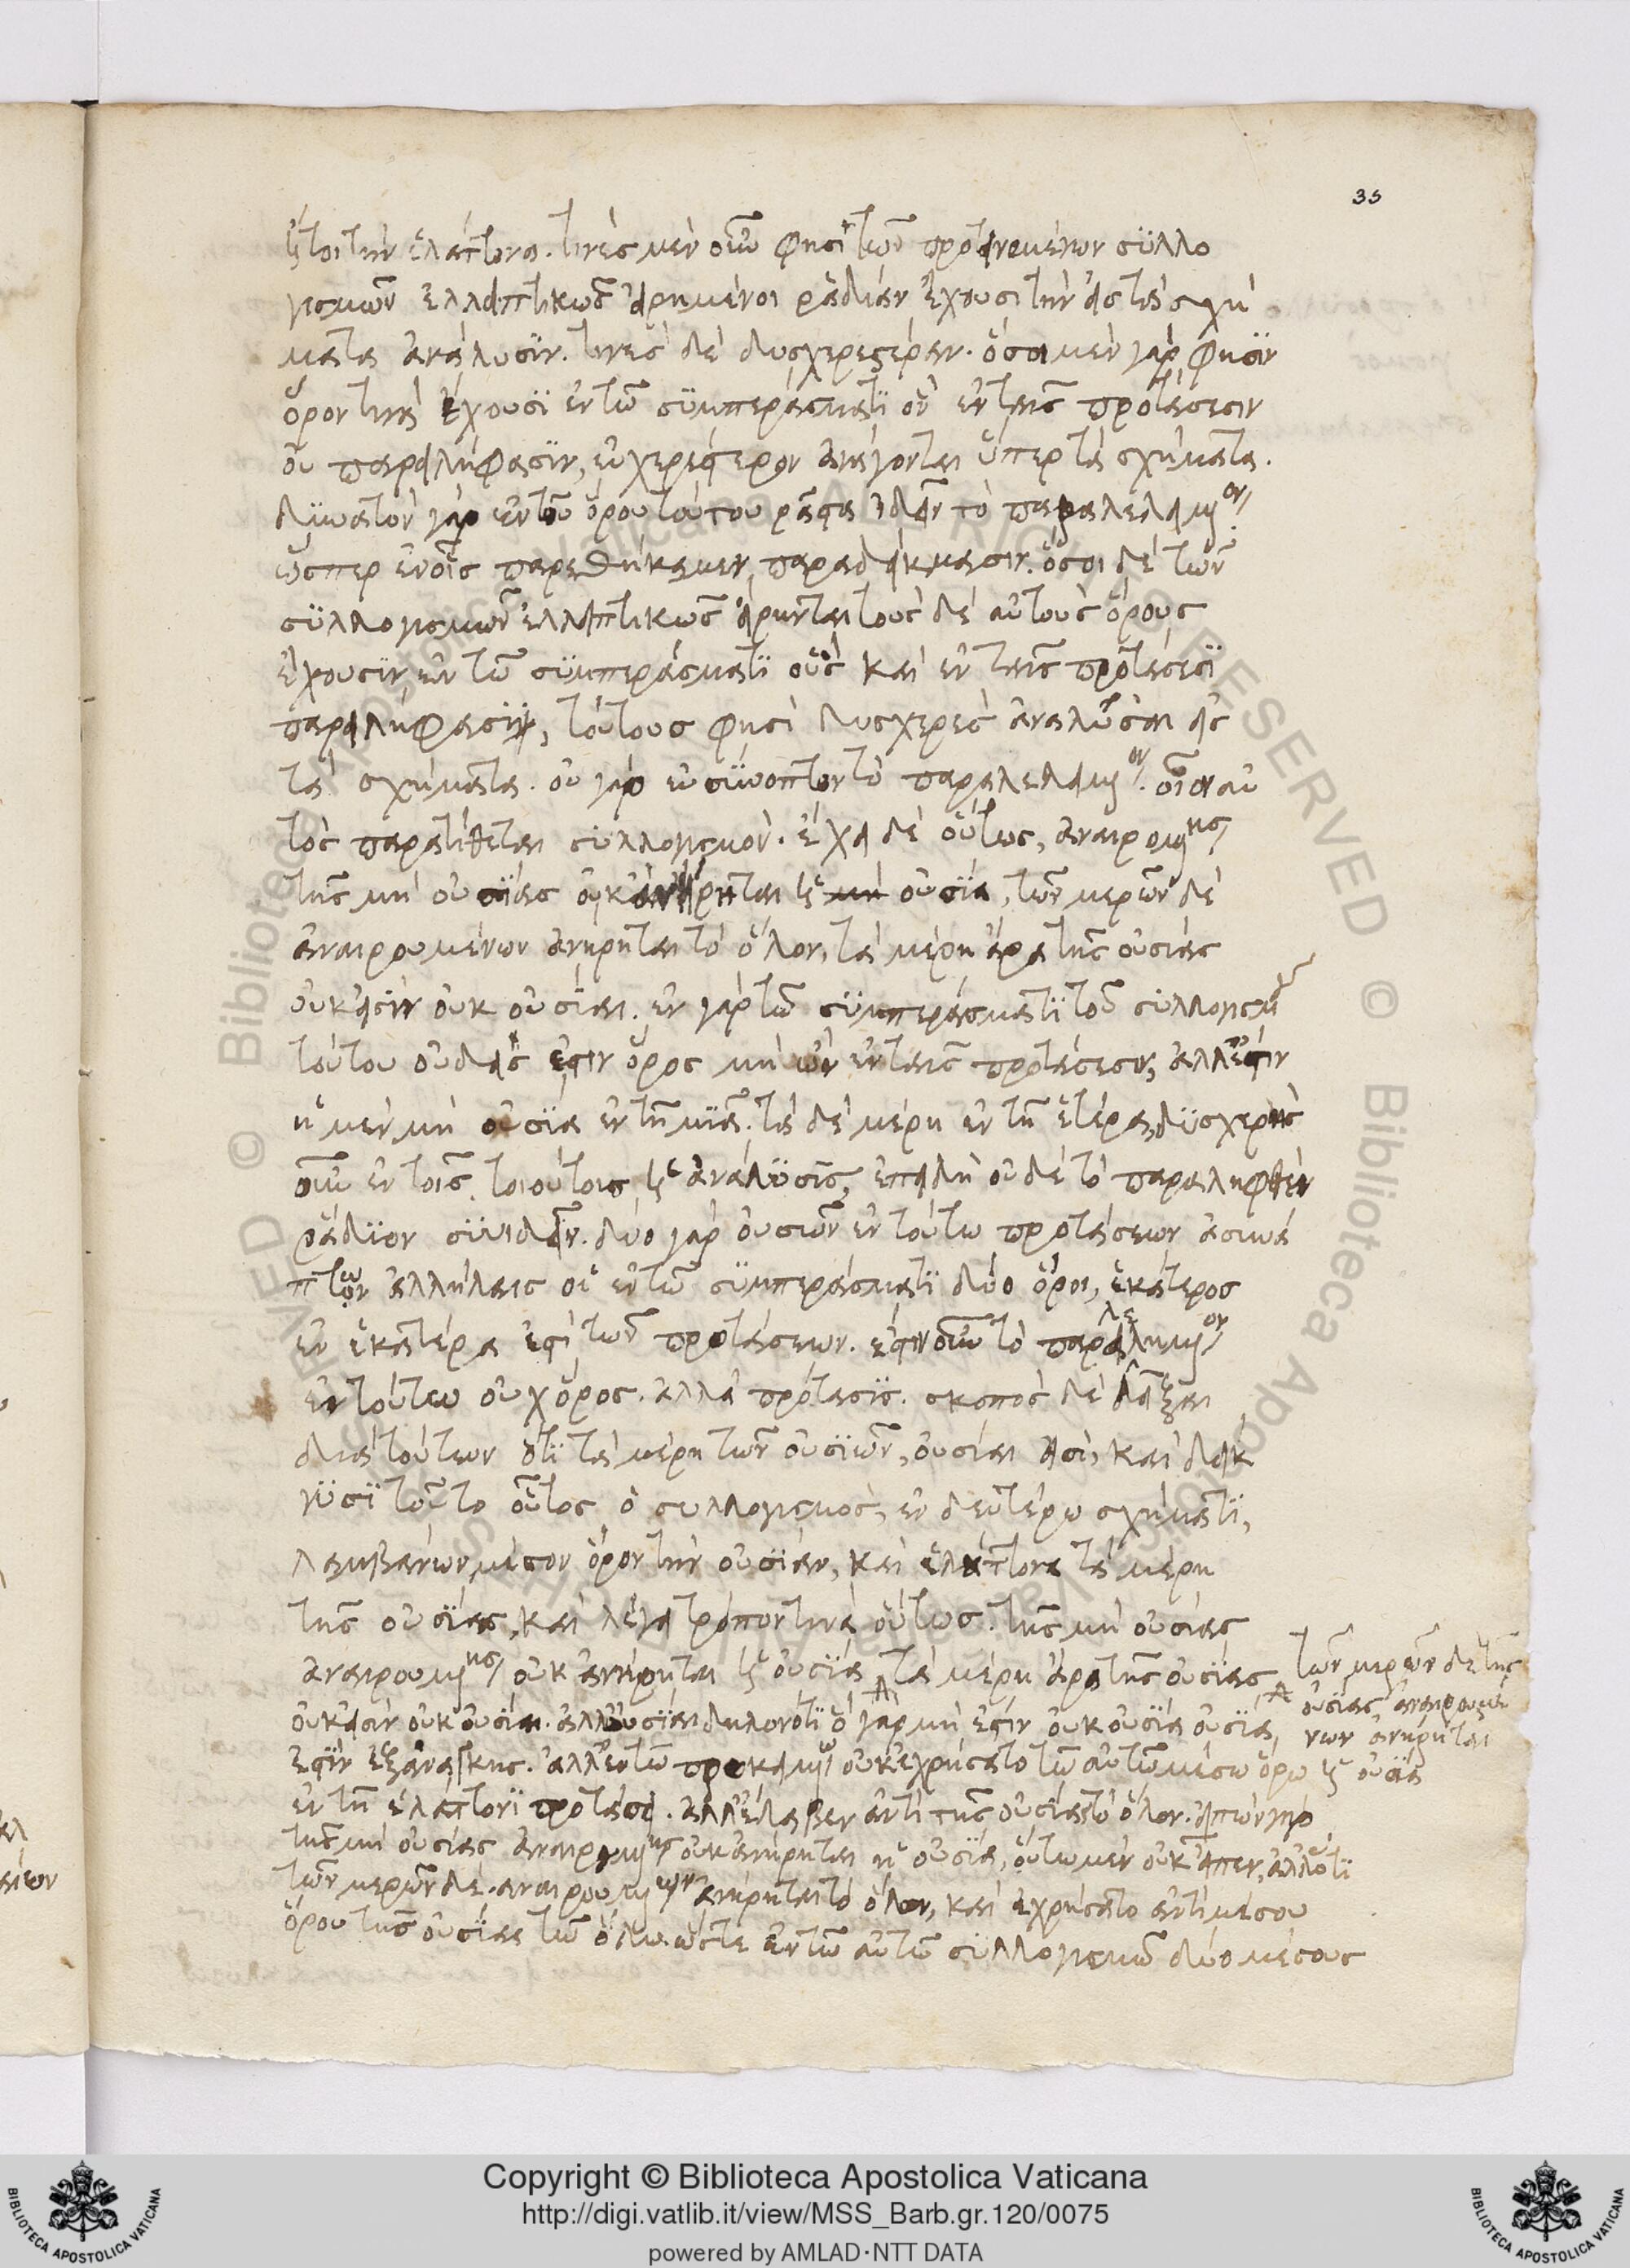 35
ἤτοι τὴν ἐλάττονα. τινὲς μὲν οὖν φησὶ τῶν προτεινομένων συλλο
γισμῶν ἐλλειπτικῶς εἰρημένοι ῥαδίαν ἔχουσι τὴν εἰς τὰ σχή
ματα ἀνάλυσιν. τινὲς δὲ δυσχερεστέραν. ὅσοι μὲν γάρ φησιν
ὅρον τινὰ ἔχουσι ἐν τῶ συμπεράσματι ὃν ἐν ταῖς προτάσεσιν
οὐ παρειλήφασιν, εὐχερέστερον ἀνάγονται ὑπὲρ τὰ σχήματα.
δυνατὸν γὰρ ἐκ τοῦ ὅρου τούτου ῥᾷστα ἰδεῖν τὸ παραλελειμμένον
ὥσπερ ἐν οἷς παρεθήκαμεν παραδείγμασιν. ὅσοι δὲ τῶν
συλλογισμῶν ἐλλειπτικῶς εἴρηνται τοὺς δὲ αὐτοὺς ὅρους
ἔχουσιν ἐν τῶ συμπεράσματι οὓς καὶ ἐν ταῖς προτάσεσι
παρειλήφασιν, τούτους φησὶ δυσχερὲς ἀναλῦσαι εἰς
τὰ σχήματα. οὐ γὰρ εὐσύνοπτον τὸ παραλελειμμένον. οἷον αὐ
τὸς παρατίθεται συλλογισμόν. ἔχει δὲ οὕτως, ἀναιρουμένης
τῆς μὴ οὐσίας οὐκ ἀνῄρηται ἡ μὴ οὐσία, τῶν μερῶν δὲ
ἀναιρουμένων ἀνήρηται τὸ ὅλον, τὰ μέρη ἄρα τῆς οὐσίας
οὐκ εἰσὶν οὐκ οὐσίαι. ἐν γὰρ τῶ συμπεράσματι τοῦ συλλογισμοῦ
τούτου οὐδείς ἐστιν ὅρος μὴ ὢν ἐν ταῖς προτάσεσιν, ἀλλ' ἔστιν
ἡ μὲν μὴ οὐσία ἐν τῆ μιᾶ. τὰ δὲ μέρη ἐν τῆ ἑτέρα, δυσχερὴς
οὖν ἐν τοῖς τοιούτοις ἡ ἀνάλυσις, ἐπειδὴ οὐδὲ τὸ παραληφθὲν
ῥάδιον συνιδεῖν. δύο γὰρ οὐσῶν ἐν τούτω προτάσεων ἀσυνά
πτων ἀλλήλαις οἱ ἐν τῶ συμπεράσματι δύο ὅροι, ἑκάτερος
ἐν ἑκατέρα ἐστὶ τῶν προτάσεων. ἔστιν οὖν τὸ παραλελειμμένον
ἐν τούτω οὐχ ὅρος. ἀλλὰ πρότασις. σκοπὸς δὲ δεῖξαι
διὰ τούτων ὅτι τὰ μέρη τῶν οὐσιῶν, οὐσίαι εἰσὶ, καὶ δείκ
νυσι τοῦτο οὗτος ὁ συλλογισμὸς, ἐν δευτέρω σχήματι,
λαμβάνων μέσον ὅρον τὴν οὐσίαν, καὶ ἐλάττονα τὰ μέρη
τῆς οὐσίας, καὶ λέγει τρόπον τινὰ οὕτως. τῆς μὴ οὐσίας
ἀναιρουμένης οὐκ ἀνήρηται ἡ οὐσία, τὰ μέρη ἄρα τῆς οὐσίας
οὐκ εἰσὶν οὐκ οὐσίαι. ἀλλ' οὐσίαι δηλονότι ὃ γὰρ μὴ ἐστὶν οὐκ οὐσία οὐσία
ἐστὶν ἐξ ἀνάγκης. ἀλλ' ἐν τῶ προκειμένω οὐκ ἐχρήσατο τῶ αὐτῶ μέσω ὅρω
ἐν τῆ ἐλάττονι προτάσει. ἀλλ' ἔλαβεν ἀντὶ τῆς οὐσίας τὸ ὅλον. εἰπὼν γὰρ
τῆς μὴ οὐσίας ἀναιρουμένης οὐκ ἀνήρηται ἡ οὐσία, οὕτω μὲν οὐκ εἶπεν, ἀλλ' ὅτι
τῶν μερῶν δὲ ἀναιρουμένων ἀνήρηται τὸ ὅλον, καὶ ἐχρήσατο ἀντὶ μέσου
ὅρου τῆς οὐσίας τῶ ὅλω. ὥστε ἐν τῶ αὐτῶ συλλογισμῶ δύο μέσους
τῶν μερῶν δὲ τῆς
οὐσίας ἀναιρουμέ
νων ἀνήρηται
ἡ οὐσία
Copyright © Biblioteca Apostolica Vaticana
http://digi.vatlib.it/view/MSS_Barb.gr.120/0075
powered by AMLAD·NTT DATA